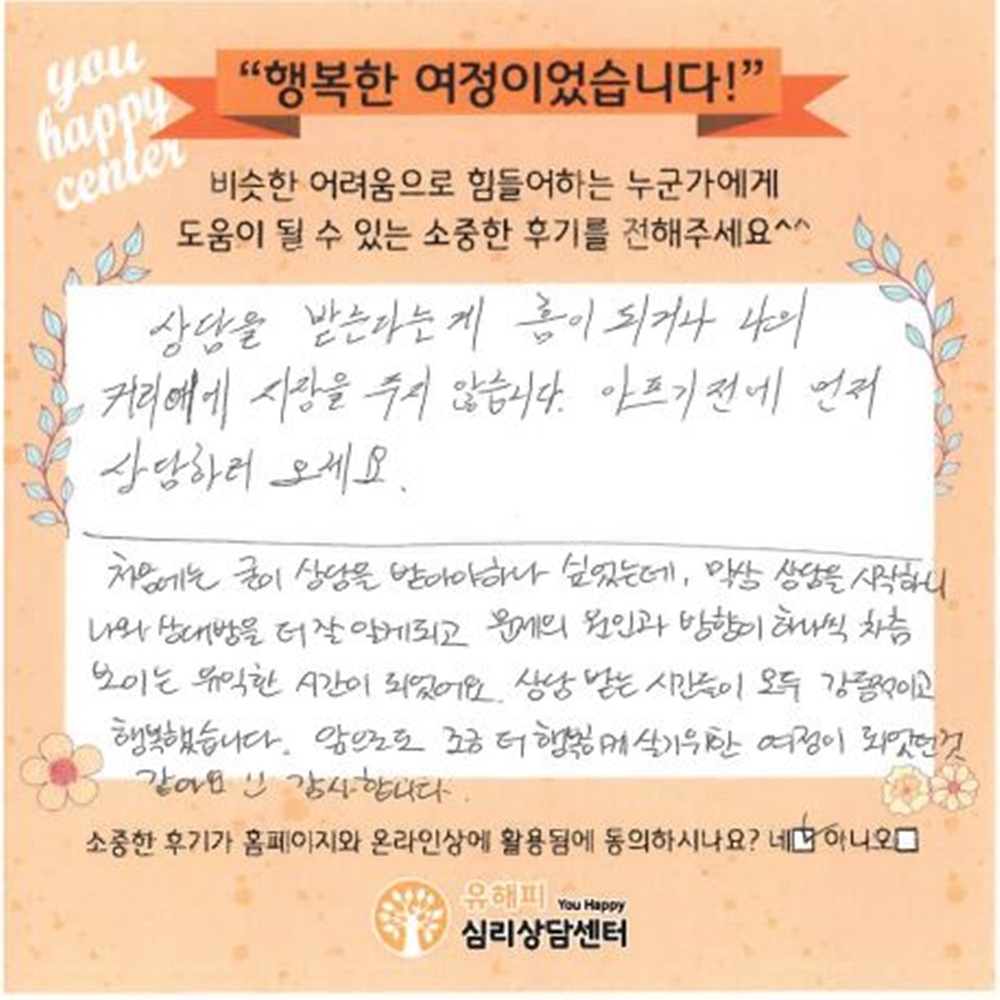 you
happy
center
“행복한 여정이었습니다!”
비슷한 어려움으로 힘들어하는 누군가에게
도움이 될 수 있는 소중한 후기를 전해주세요^^
상담을 받는다는게 흠이 되거나 나의
커리어에 지장을 주지 않습니다. 아프기전에 먼저
상담하러 오세요.
처음에는 굳이 상담을 받아야하나 싶었는데, 막상 상담을 시작하니
나와 상대방을 더 잘 알게되고 문제의 원인과 방향이 하나씩 차츰
보이는 유익한 시간이 되었어요. 상담 받는 시간들이 모두 감동적이고
행복했습니다. 앞으로도 조금 더 행복하게 살기위한 여정이 되었던것
같아요 감사합니다.
소중한 후기가 홈페이지와 온라인상에 활용됨에 동의하시나요? 네 아니오
유해피 You Happy
심리상담센터